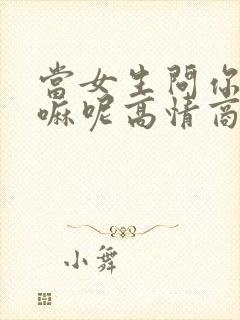 當女生問你
嘛呢高情商
小舞